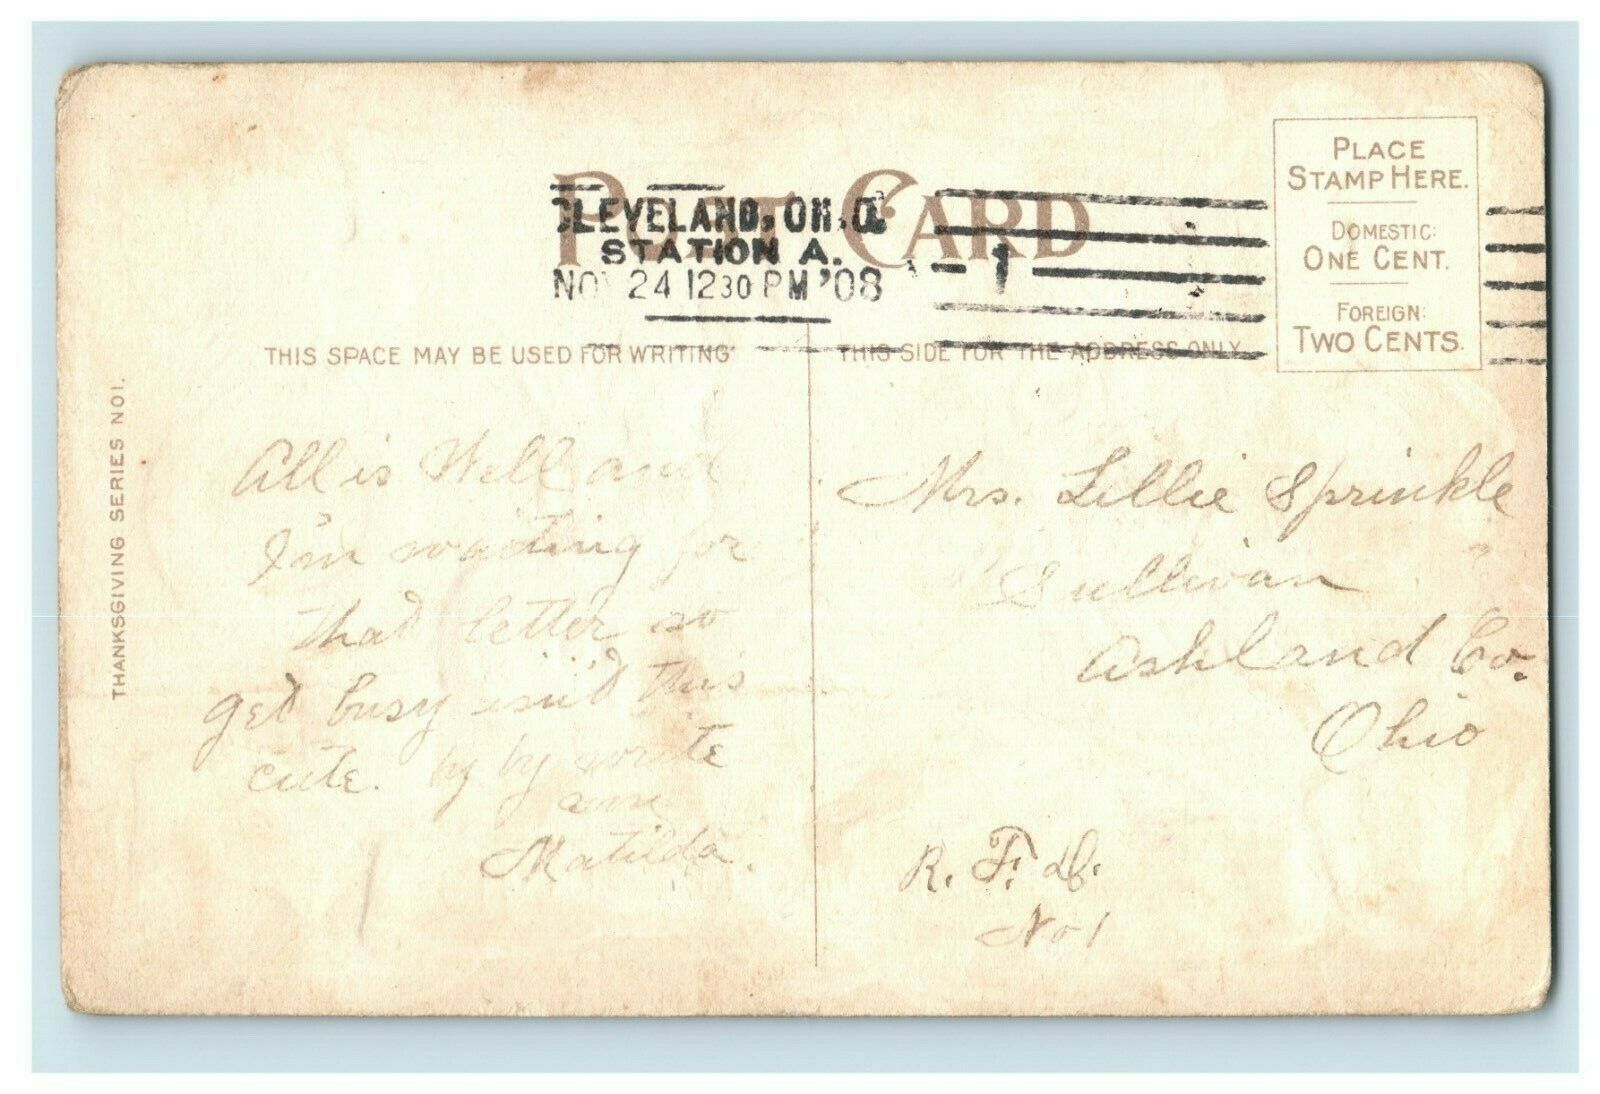 POST CARD
CLEVELAND, OHIO
STATION A.
NOV 24 1230 PM '08
1
PLACE
STAMP HERE.
DOMESTIC:
ONE CENT.
FOREIGN:
TWO CENTS.
THIS SPACE MAY BE USED FOR WRITING
THIS SIDE FOR THE ADDRESS ONLY
THANKSGIVING SERIES NO 1.
All is Well and
I'm waiting for
that letter so
get busy isn't this
cute. by by write
Matilda.
Mrs. Lillie Sprinkle
Sullivan
Ashland Co.
Ohio
R. F. D.
No 1